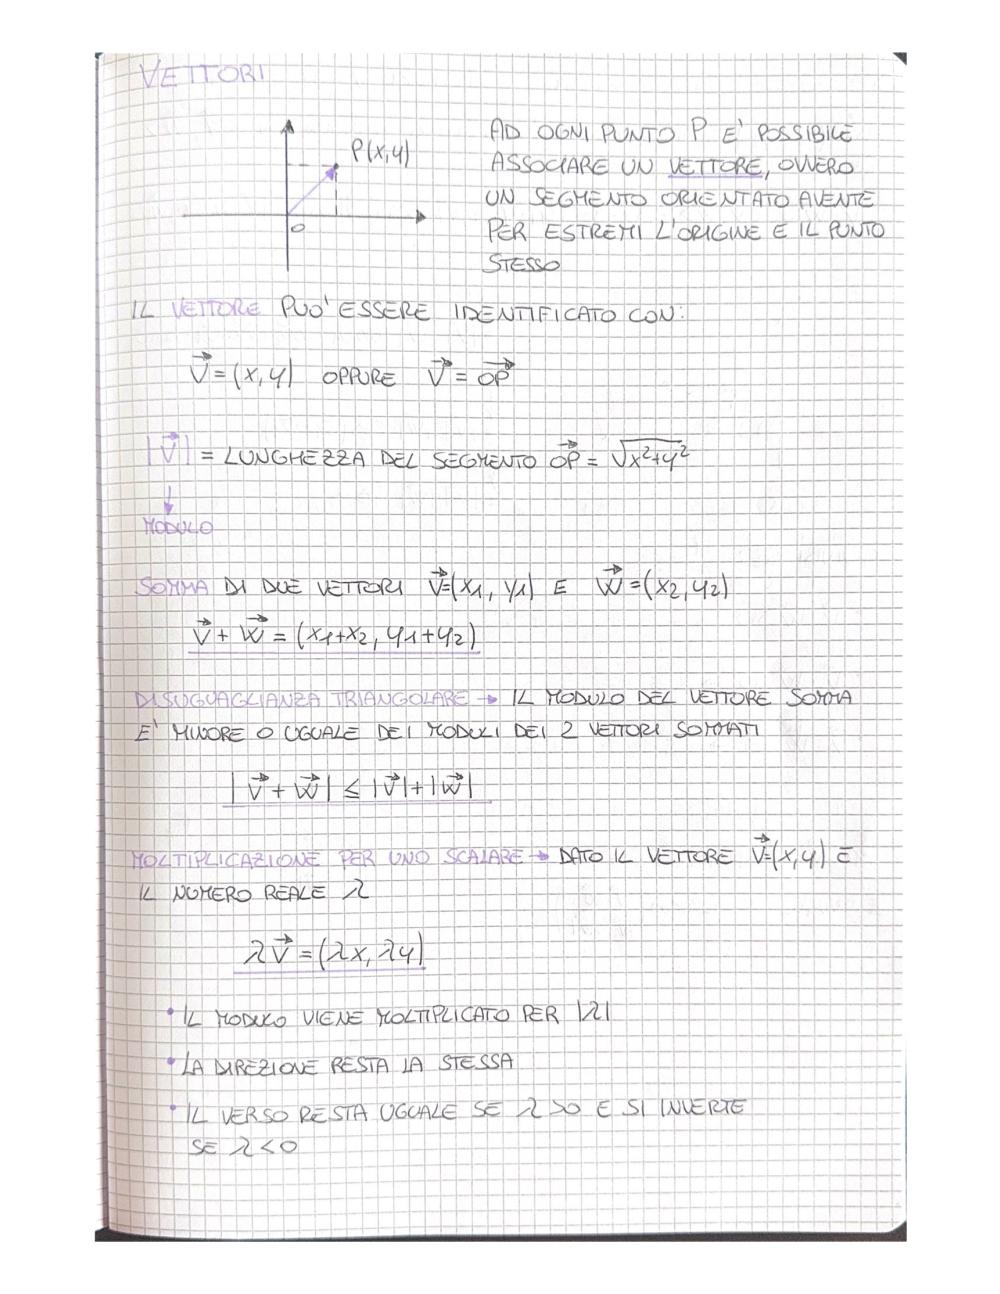 VETTORI
P(x,y)
O
AD OGNI PUNTO P E' POSSIBILE
ASSOCIARE UN VETTORE, OVVERO
UN SEGMENTO ORIENTATO AVENTE
PER ESTREMI L'ORIGINE E IL PUNTO
STESSO
IL VETTORE PUO' ESSERE IDENTIFICATO CON:
V⃗ = (x, y) OPPURE V⃗ = OP⃗
|V⃗| = LUNGHEZZA DEL SEGMENTO OP⃗ = √(x²+y²)
↓
MODULO
SOMMA DI DUE VETTORI V⃗=(x1, y1) E W⃗=(x2, y2)
V⃗ + W⃗ = (x1+x2, y1+y2)
DISUGUAGLIANZA TRIANGOLARE → IL MODULO DEL VETTORE SOMMA
E' MINORE O UGUALE DEI MODULI DEI 2 VETTORI SOMMATI
|V⃗ + W⃗| ≤ |V⃗|+|W⃗|
MOLTIPLICAZIONE PER UNO SCALARE → DATO IL VETTORE V⃗=(x,y) E
IL NUMERO REALE λ
λV⃗ = (λx, λy)
• IL MODULO VIENE MOLTIPLICATO PER |λ|
• LA DIREZIONE RESTA LA STESSA
• IL VERSO RESTA UGUALE SE λ>0 E SI INVERTE
SE λ<0